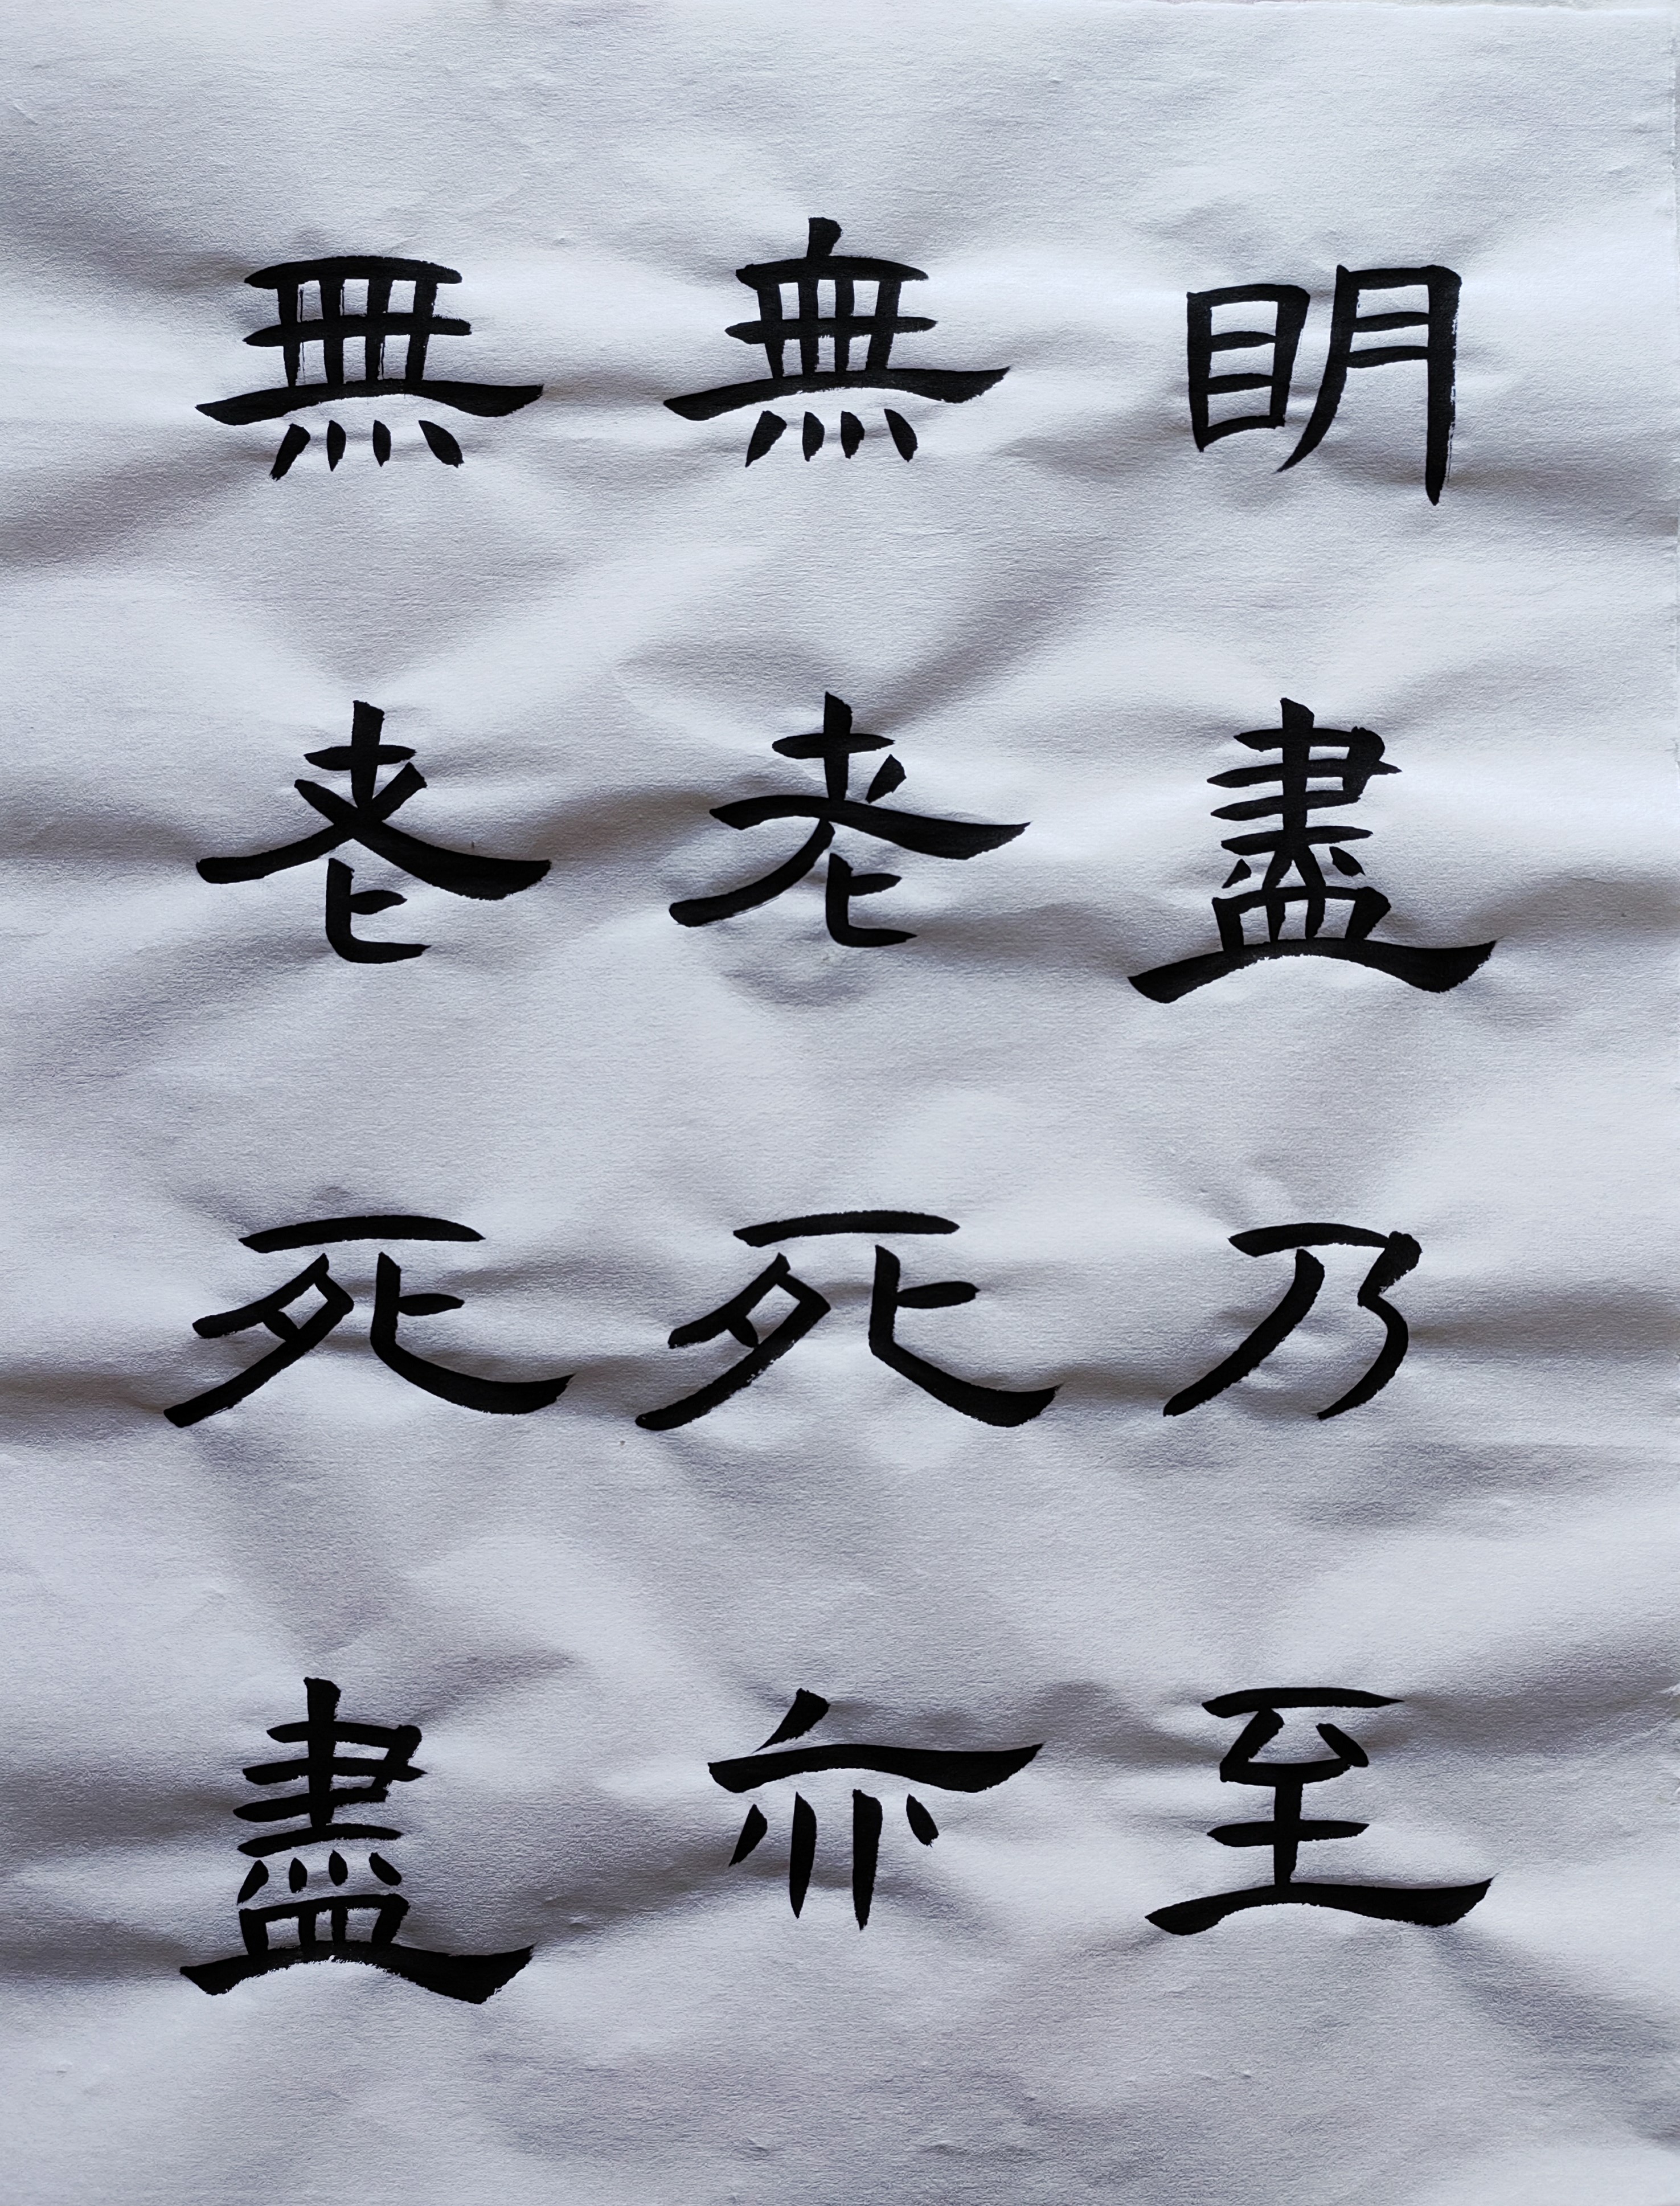 明盡乃至
無老死亦
無老死盡